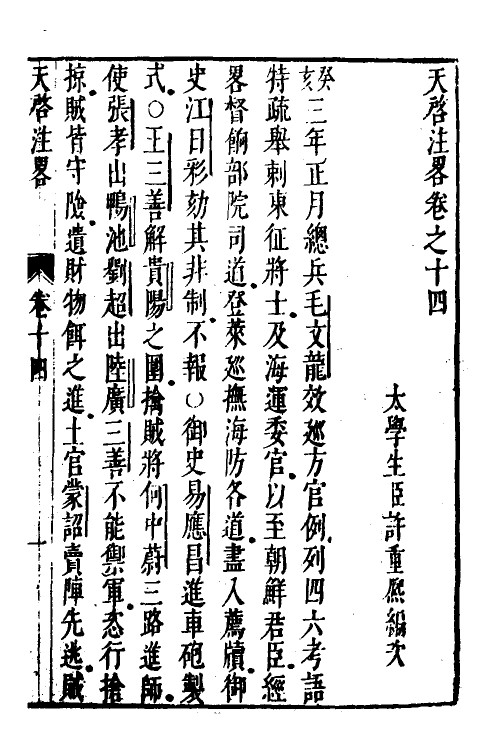 天啓注畧卷之十四
太學生臣許重熈編次
癸亥三年正月總兵毛文龍效廵方官例列四六考語
特疏舉刺東征將士及海運委官以至朝鮮君臣經
畧督餉部院司道登萊廵撫海防各道盡入薦牘御
史江日彩劾其非制不報○御史易應昌進車砲製
式○王三善解貴陽之圍擒賊將何中蔚三路進師
使張孝出鴨池劉超出陸廣三善不能禦軍恣行搶
掠賊皆守險遺財物餌之進土官蒙詔賣陣先逃賊
天啓注畧
卷十四
一